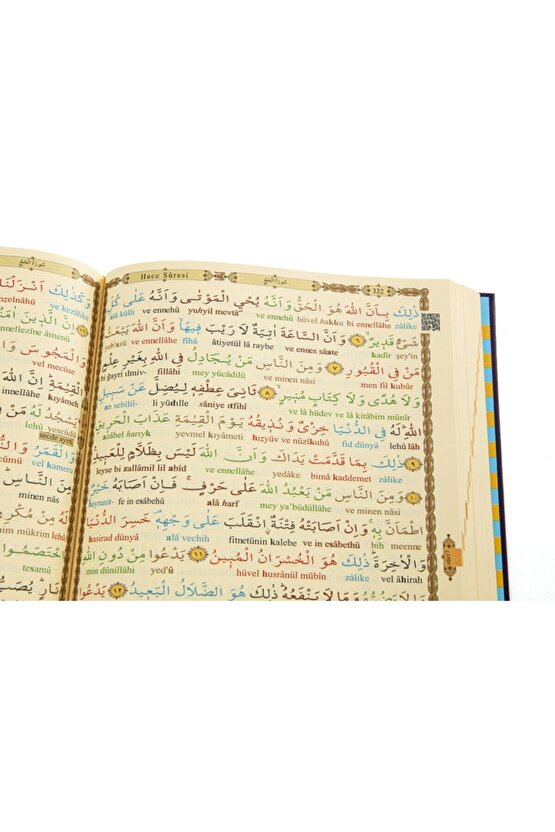 Hacc Sûresi
سُورَةُ الْحَجِّ
332
ذٰلِكَ بِاَنَّ اللّٰهَ هُوَ الْحَقُّ وَاَنَّهُ يُحْيِي الْمَوْتٰى وَاَنَّهُ عَلٰى كُلِّ
zâlike bi ennellâhe hüvel hakku ve ennehû yuhyil mevtâ ve ennehû alâ külli
شَيْءٍ قَدِيرٌ ﴿٦﴾ وَاَنَّ السَّاعَةَ اٰتِيَةٌ لَا رَيْبَ فِيهَا وَاَنَّ اللّٰهَ يَبْعَثُ
şey'in kadîr ve ennes sâate âtiyetül lâ raybe fîhâ
مَنْ فِي الْقُبُورِ ﴿٧﴾ وَمِنَ النَّاسِ مَنْ يُجَادِلُ فِي اللّٰهِ بِغَيْرِ عِلْمٍ
men fil kubûr ve minen nâsi mey yücâdilü fillâhi bi ğayri ilmiv-
وَلَا هُدًى وَلَا كِتَابٍ مُنِيرٍ ﴿٨﴾ ثَانِيَ عِطْفِهِ لِيُضِلَّ عَنْ سَبِيلِ
ve lâ hüdev ve lâ kitâbim münîr sâniye ıtfihî li yüdılle an sebîlil-
اللّٰهِ لَهُ فِي الدُّنْيَا خِزْيٌ وَنُذِيقُهُ يَوْمَ الْقِيٰمَةِ عَذَابَ الْحَرِيقِ
lâhi lehû fid dünyâ hızyüv ve nüzîkuhû yevmel kıyâmeti azâbel harîyk
﴿٩﴾ ذٰلِكَ بِمَا قَدَّمَتْ يَدَاكَ وَاَنَّ اللّٰهَ لَيْسَ بِظَلَّامٍ لِلْعَبِيدِ
zâlike bimâ kaddemet yedâke ve ennellâhe leyse bi zallâmil lil abîd
﴿١٠﴾ وَمِنَ النَّاسِ مَنْ يَعْبُدُ اللّٰهَ عَلٰى حَرْفٍ فَاِنْ اَصَابَهُ خَيْرٌ
ve minen nâsi mey ya'büdüllâhe alâ harf fe in esâbehû hayrunit-
اطْمَاَنَّ بِهِ وَاِنْ اَصَابَتْهُ فِتْنَةٌ انْقَلَبَ عَلٰى وَجْهِهِ خَسِرَ الدُّنْيَا
meenne bih ve in esâbethü fitnetünin kalebe alâ vechih hasirad dünyâ
وَالْاٰخِرَةَ ذٰلِكَ هُوَ الْخُسْرَانُ الْمُبِينُ ﴿١١﴾ يَدْعُوا مِنْ دُونِ اللّٰهِ
vel âhirah zâlike hüvel husrânül mübîn yed'û min dûnillâhi
مَا لَا يَضُرُّهُ وَمَا لَا يَنْفَعُهُ ذٰلِكَ هُوَ الضَّلَالُ الْبَعِيدُ ﴿١٢﴾ يَدْعُوا
سُورَةُ الْحَجِّ
وَكَذٰلِكَ اَنْزَلْنَا
ve kezâlike enzelnâhü
اِنَّ الَّذِينَ اٰمَنُوا
innellezîne âmenû
وَالْمَجُوسَ
vel mecûse
الْقِيٰمَةِ اِنَّ اللّٰهَ
kıyâmeh
يَسْجُدُ لَهُ مَنْ
yescüdü lehû
secde ayeti
وَالْقَمَرُ
vel kameru
مِنَ النَّاسِ
minen nâs
مِنْ مُكْرِمٍ
اخْتَصَمُوا
نَارٍ يُصَبُّ